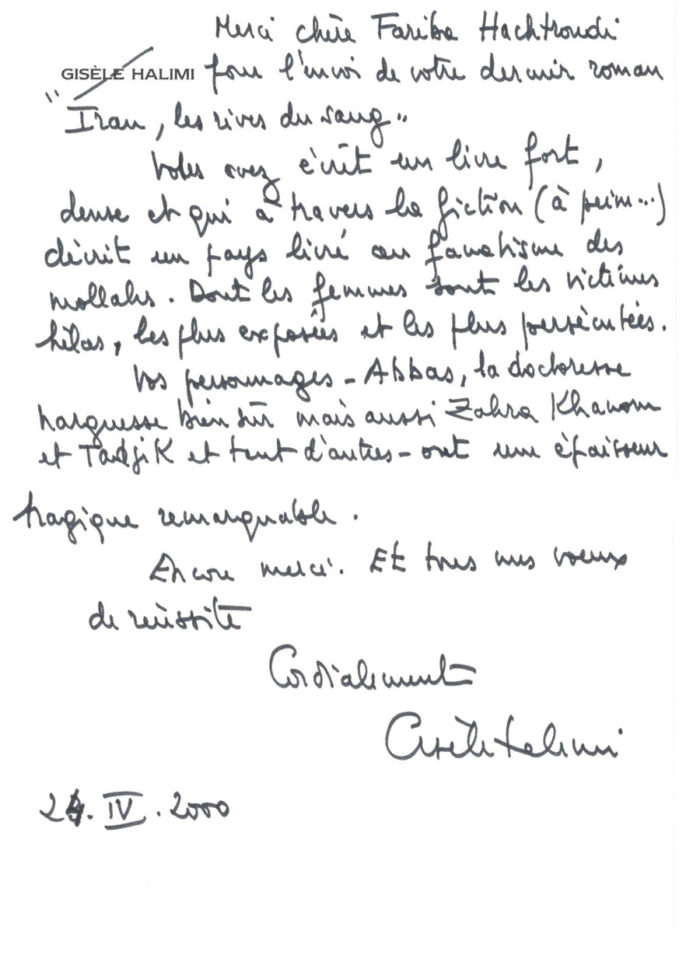 Merci chère Fariba Hachtroudi
GISÈLE HALIMI
pour l'envoi de votre dernier roman
"Iran, les rives du sang"
Vous avez écrit un livre fort,
dense et qui à travers la fiction (à peine...)
décrit un pays livré au fanatisme des
mollahs. Dont les femmes sont les victimes
hélas, les plus exposées et les plus persécutées.
Vos personnages - Abbas, la doctoresse
narguesse bien sûr mais aussi Zahra Khanom
et Tadjik et tant d'autres - ont une épaisseur
tragique remarquable.
Encore merci. Et tous mes voeux
de réussite
Cordialement
Gisèle Halimi
IV. 2000